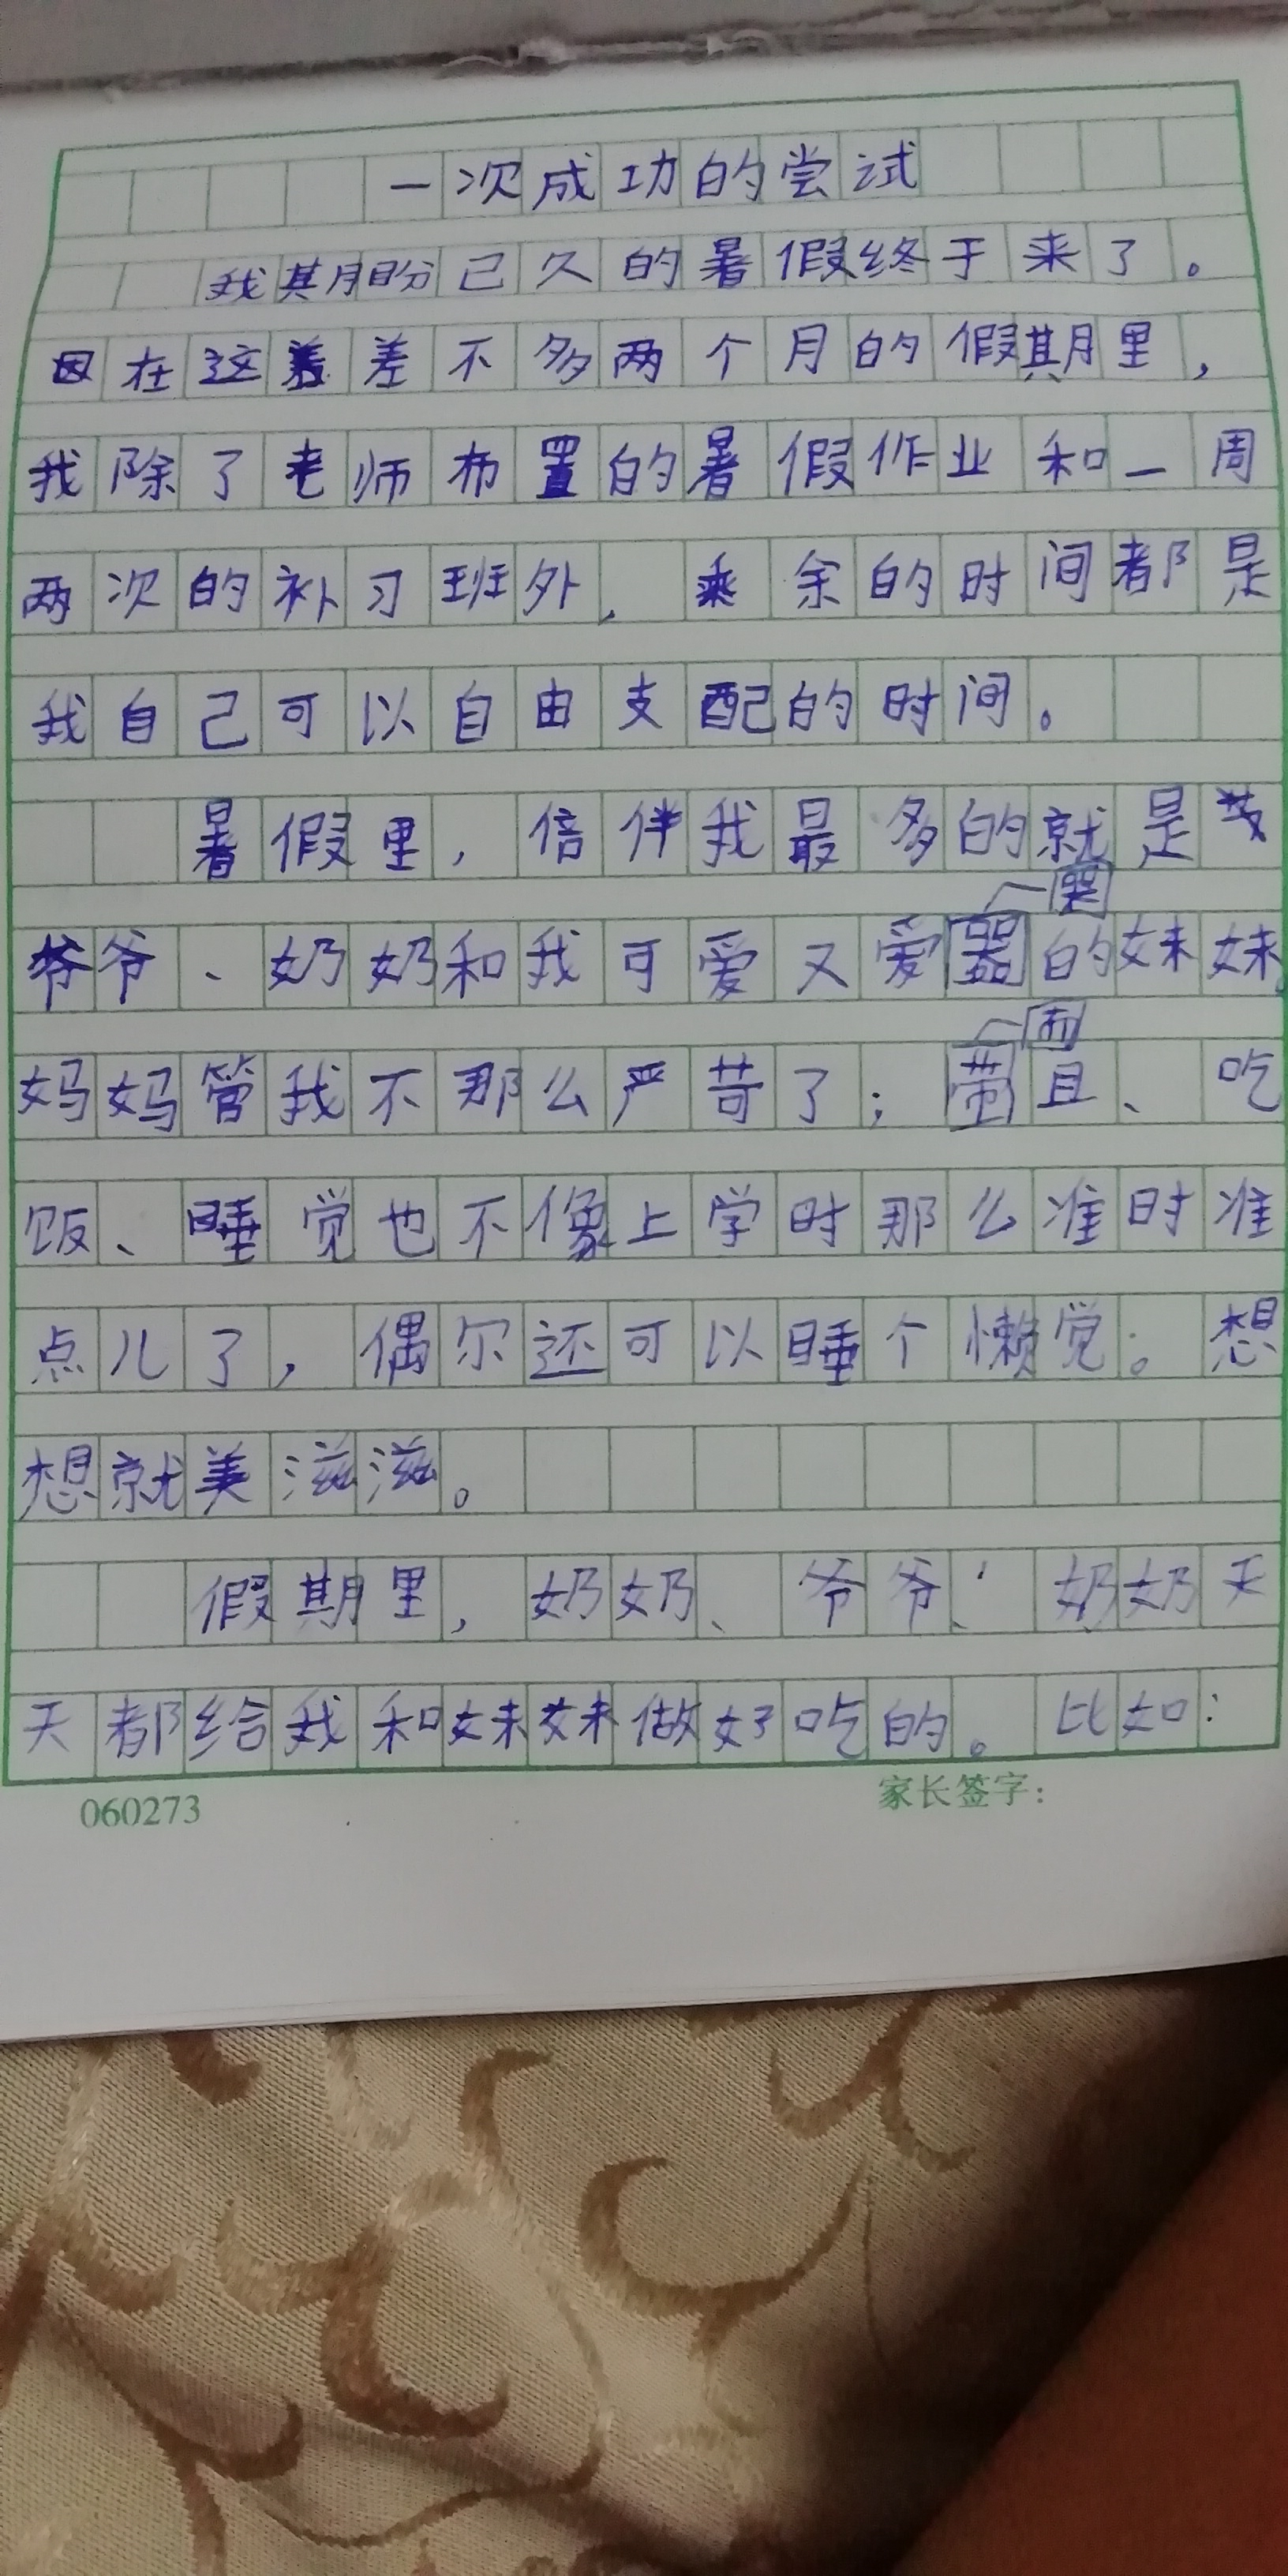 一次成功的尝试
我期盼已久的暑假终于来了。
因在这差差不多两个月的假期里，
我除了老师布置的暑假作业和一周
两次的补习班外，乘余的时间都是
我自己可以自由支配的时间。
暑假里，倍伴我最多的就是
哭
爷爷、奶奶和我可爱又爱器的妹妹，
而
妈妈管我不那么严苛了；带且、吃
饭、睡觉也不像上学时那么准时准
点儿了，偶尔还可以睡个懒觉。想
想就美滋滋。
假期里，奶奶、爷爷、奶奶天
天都给我和妹妹做好吃的。比如：
060273
家长签字：